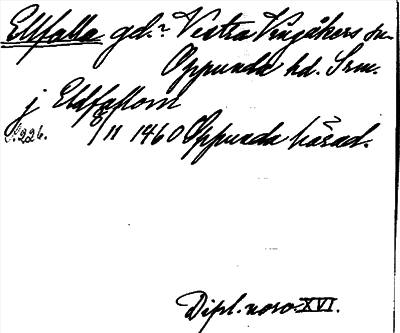 Ellfalla gd.? Västra Vingåkers sn.
Oppunda hd. Srm.
j Eldfaflom
s. 226. 8/11 1460 Oppunda härad.
Dipl. noro. XVI.